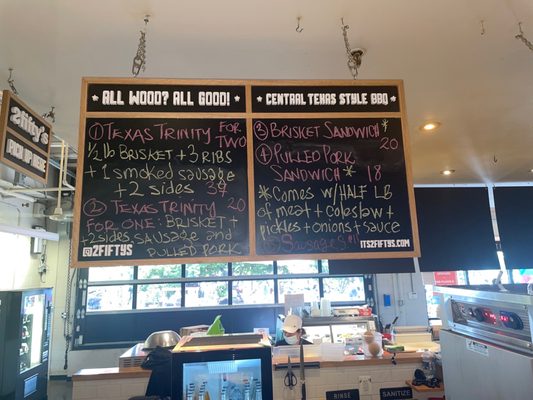 2fifty's
ALL WOOD? ALL GOOD!
① TEXAS TRINITY FOR TWO
1/2 lb BRISKET + 3 RIBS
+ 1 smoked sausage
+ 2 sides 39
② TEXAS TRINITY 20
FOR ONE: BRISKET +
+ 2 sides SAUSAGE and
PULLED PORK
@2FIFTYS
CENTRAL TEXAS STYLE BBQ
③ BRISKET SANDWICH*
20
④ PULLED PORK
SANDWICH * 18
*COMES W/HALF LB
OF meat + coleslaw +
pickles + onions + sauce
ITS2FIFTY.COM
RINSE
SANITIZE